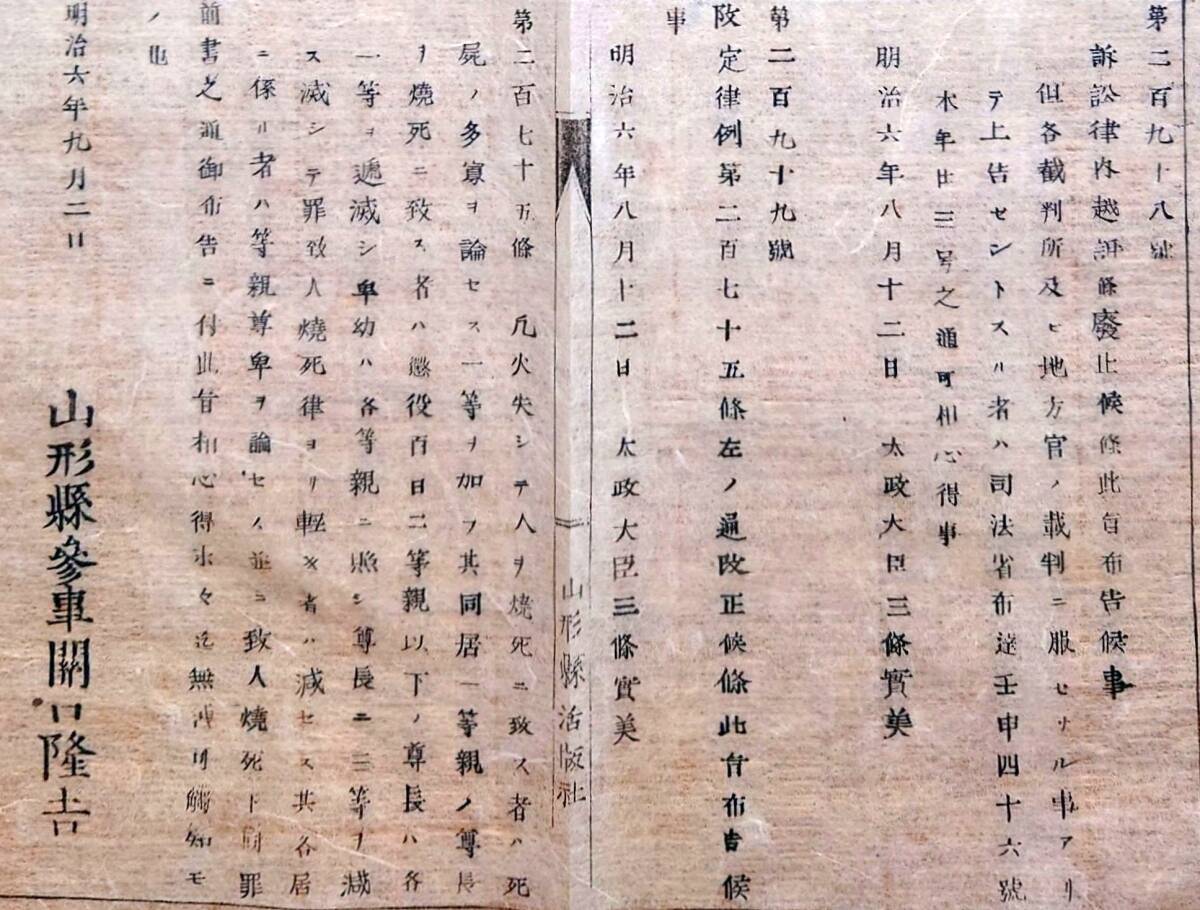 第二百九十八號
訴訟律内越訴條廢止候條此旨布告候事
但各裁判所及ヒ地方官ノ裁判ニ服セサル事アリ
テ上告セントスル者ハ司法省布達壬申四十六號
本年廿三号之通可相心得事
明治六年八月十二日 太政大臣三條實美
第二百九十九號
改定律例第二百七十五條左ノ通改正候條此旨布告候
事
明治六年八月十二日 太政大臣三條實美
山形縣活版社
第二百七十五條 凡火失シテ人ヲ燒死ニ致ス者ハ死
屍ノ多寡ヲ論セス一等ヲ加フ其同居一等親ノ尊長
ヲ燒死ニ致ス者ハ懲役百日二等親以下ノ尊長ハ各
一等ヲ遞減シ卑幼ハ各等親ニ照シ尊長ニ三等ヲ減
ス減シテ罪致人燒死律ヨリ輕キ者ハ減セス其各居
ニ係ル者ハ等親尊卑ヲ論セス並ニ致人燒死ト同罪
前書之通御布告ニ付此旨相心得末々迄無洩可觸知モ
ノ也
明治六年九月二日
山形縣參事關口隆吉